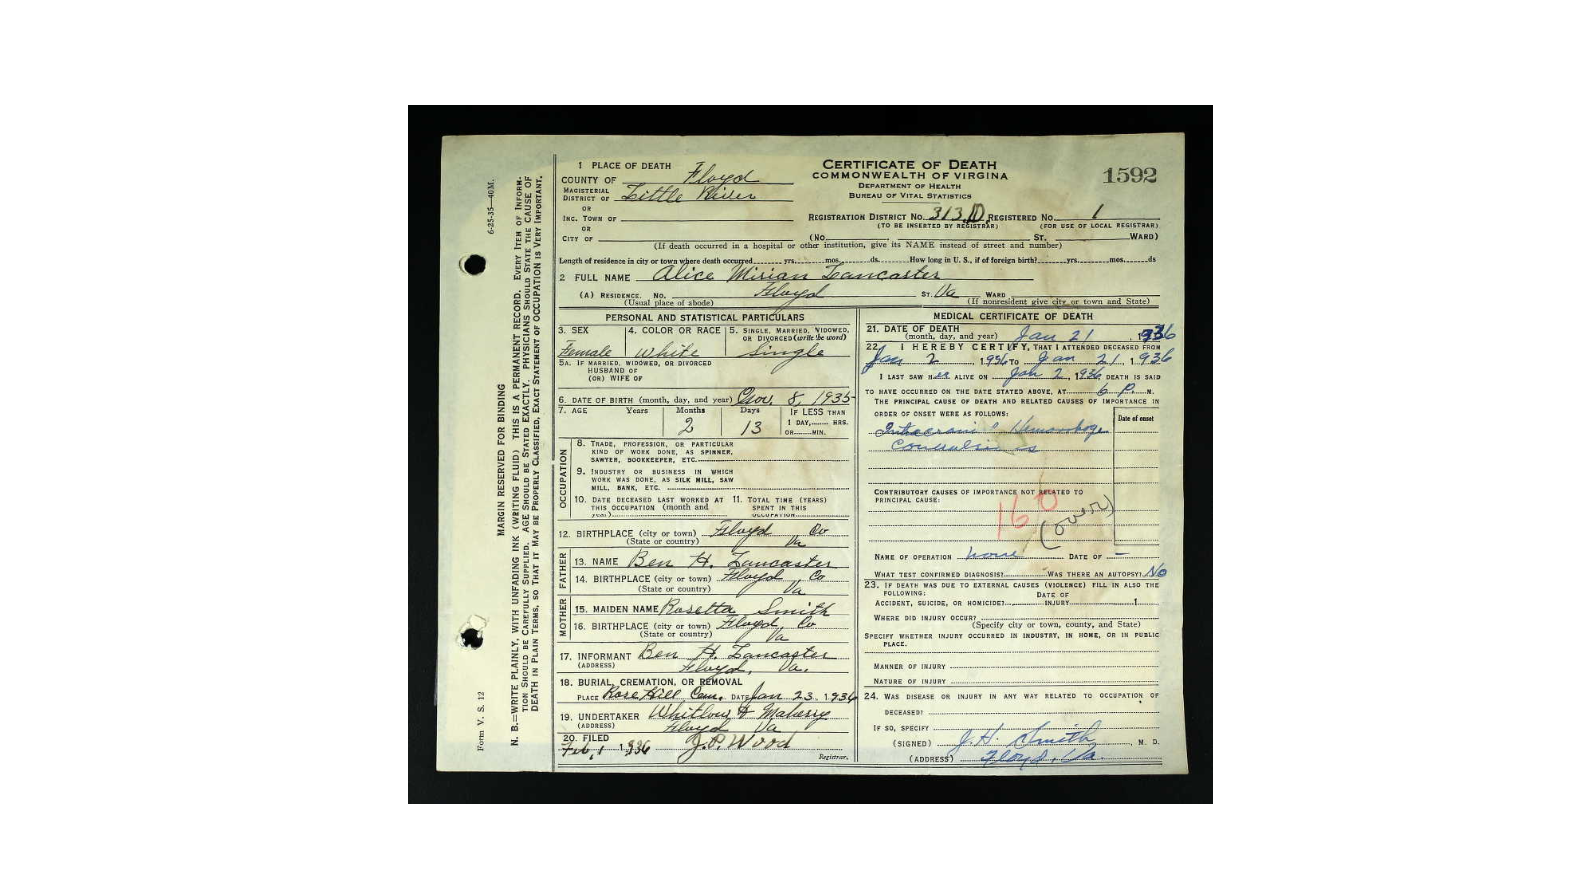 1 PLACE OF DEATH
COUNTY OF Floyd
MAGISTERIAL DISTRICT OF Little River
OR
INC. TOWN OF
OR
CITY OF
CERTIFICATE OF DEATH
COMMONWEALTH OF VIRGINIA
DEPARTMENT OF HEALTH
BUREAU OF VITAL STATISTICS
1592
REGISTRATION DISTRICT NO. 313 D REGISTERED NO. 1
(TO BE INSERTED BY REGISTRAR) (FOR USE OF LOCAL REGISTRAR)
(No. ST. WARD)
(If death occurred in a hospital or other institution, give its NAME instead of street and number)
Length of residence in city or town where death occurred yrs. mos. ds. How long in U. S., if of foreign birth? yrs. mos. ds
2 FULL NAME Alice Mirian Lancaster
(A) RESIDENCE. NO. Floyd ST. Va WARD
(Usual place of abode) (If nonresident give city or town and State)
PERSONAL AND STATISTICAL PARTICULARS
3. SEX 4. COLOR OR RACE 5. SINGLE, MARRIED, WIDOWED, OR DIVORCED (write the word)
Female White Single
5A. IF MARRIED, WIDOWED, OR DIVORCED
HUSBAND OF
(OR) WIFE OF
6. DATE OF BIRTH (month, day, and year) Nov. 8, 1935
7. AGE Years Months Days IF LESS THAN
1 DAY, HRS.
OR MIN.
2 13
OCCUPATION
8. TRADE, PROFESSION, OR PARTICULAR
KIND OF WORK DONE, AS SPINNER,
SAWYER, BOOKKEEPER, ETC.
9. INDUSTRY OR BUSINESS IN WHICH
WORK WAS DONE, AS SILK MILL, SAW
MILL, BANK, ETC.
10. DATE DECEASED LAST WORKED AT 11. TOTAL TIME (YEARS)
THIS OCCUPATION (month and SPENT IN THIS
year) OCCUPATION
12. BIRTHPLACE (city or town) Floyd Co
(State or country) Va
FATHER
13. NAME Ben H. Lancaster
14. BIRTHPLACE (city or town) Floyd Co
(State or country) Va
MOTHER
15. MAIDEN NAME Rosetta Smith
16. BIRTHPLACE (city or town) Floyd Co
(State or country) Va
17. INFORMANT Ben H. Lancaster
(ADDRESS) Floyd, Va.
18. BURIAL, CREMATION, OR REMOVAL
PLACE Rose Hill Cem. DATE Jan 23, 1936
19. UNDERTAKER Whitlow &
(ADDRESS) Floyd Va
20. FILED
Feb, 1 1936 J.P. Wood
Registrar.
MEDICAL CERTIFICATE OF DEATH
21. DATE OF DEATH
(month, day, and year) Jan 21, 1936
22. I HEREBY CERTIFY, THAT I ATTENDED DECEASED FROM
Jan 2, 1936 TO Jan 21, 1936
I LAST SAW HER ALIVE ON Jan 2, 1936 DEATH IS SAID
TO HAVE OCCURRED ON THE DATE STATED ABOVE, AT 6 P. M.
THE PRINCIPAL CAUSE OF DEATH AND RELATED CAUSES OF IMPORTANCE IN
ORDER OF ONSET WERE AS FOLLOWS: Date of onset
Hemorrhage
CONTRIBUTORY CAUSES OF IMPORTANCE NOT RELATED TO
PRINCIPAL CAUSE:
160
(over)
NAME OF OPERATION none DATE OF —
WHAT TEST CONFIRMED DIAGNOSIS? WAS THERE AN AUTOPSY? No
23. IF DEATH WAS DUE TO EXTERNAL CAUSES (VIOLENCE) FILL IN ALSO THE
FOLLOWING: DATE OF
ACCIDENT, SUICIDE, OR HOMICIDE? INJURY 1
WHERE DID INJURY OCCUR?
(Specify city or town, county, and State)
SPECIFY WHETHER INJURY OCCURRED IN INDUSTRY, IN HOME, OR IN PUBLIC
PLACE.
MANNER OF INJURY
NATURE OF INJURY
24. WAS DISEASE OR INJURY IN ANY WAY RELATED TO OCCUPATION OF
DECEASED?
IF SO, SPECIFY
(SIGNED) J.H. Smith, M. D.
(ADDRESS) Floyd, Va.
6-25-35—40M.
MARGIN RESERVED FOR BINDING
Form V. S. 12
N. B.—WRITE PLAINLY, WITH UNFADING INK (WRITING FLUID) THIS IS A PERMANENT RECORD. EVERY ITEM OF INFORM-
TION SHOULD BE CAREFULLY SUPPLIED. AGE SHOULD BE STATED EXACTLY. PHYSICIANS SHOULD STATE THE CAUSE OF
DEATH IN PLAIN TERMS, SO THAT IT MAY BE PROPERLY CLASSIFIED, EXACT STATEMENT OF OCCUPATION IS VERY IMPORTANT.